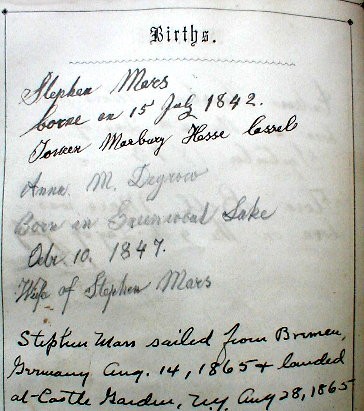 Births.
Stephen Mars
borne on 15 July 1842.
Marburg Hesse Cassel
Anna M. Degrow
Born in Greenwood Lake
10. 1847.
Wife of Stephen Mars
Stephen Mars sailed from Bremen,
Germany Aug. 14, 1865 + landed
at Castle Garden, NY Aug 28, 1865